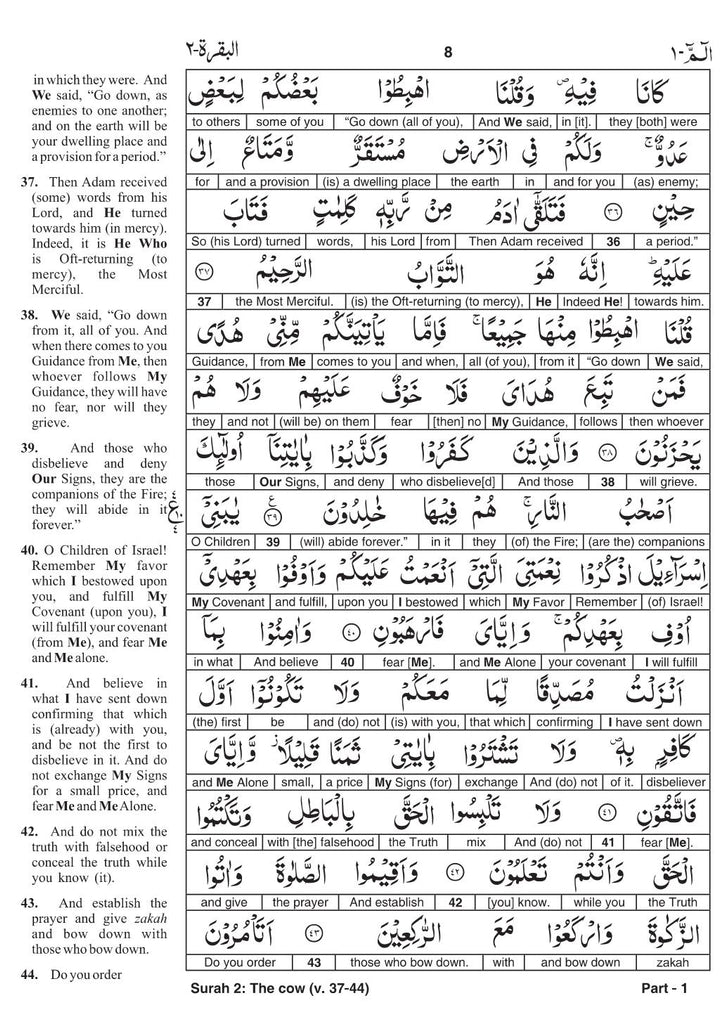 البقرة-٢
8
الٓمّٓ-١
in which they were. And
We said, “Go down, as
enemies to one another;
and on the earth will be
your dwelling place and
a provision for a period.”
37. Then Adam received
(some) words from his
Lord, and He turned
towards him (in mercy).
Indeed, it is He Who
is Oft-returning (to
mercy), the Most
Merciful.
38. We said, “Go down
from it, all of you. And
when there comes to you
Guidance from Me, then
whoever follows My
Guidance, they will have
no fear, nor will they
grieve.
39. And those who
disbelieve and deny
Our Signs, they are the
companions of the Fire;
they will abide in it
forever.”
40. O Children of Israel!
Remember My favor
which I bestowed upon
you, and fulfill My
Covenant (upon you), I
will fulfill your covenant
(from Me), and fear Me
and Me alone.
41. And believe in
what I have sent down
confirming that which
is (already) with you,
and be not the first to
disbelieve in it. And do
not exchange My Signs
for a small price, and
fear Me and Me Alone.
42. And do not mix the
truth with falsehood or
conceal the truth while
you know (it).
43. And establish the
prayer and give zakah
and bow down with
those who bow down.
44. Do you order
كَانَا فِيْهِ ۖ وَقُلْنَا اهْبِطُوْا بَعْضُكُمْ لِبَعْضٍ
to others | some of you | “Go down (all of you), | And We said, | in [it]. | they [both] were
عَدُوٌّ ۚ وَلَكُمْ فِي الْاَرْضِ مُسْتَقَرٌّ وَّمَتَاعٌ اِلٰى
for | and a provision | (is) a dwelling place | the earth | in | and for you | (as) enemy;
حِيْنٍ ﴿٣٦﴾ فَتَلَقّٰٓى اٰدَمُ مِنْ رَّبِّهٖ كَلِمٰتٍ فَتَابَ
So (his Lord) turned | words, | his Lord | from | Then Adam received | 36 | a period.”
عَلَيْهِ ؕ اِنَّهٗ هُوَ التَّوَّابُ الرَّحِيْمُ ﴿٣٧﴾
37 | the Most Merciful. | (is) the Oft-returning (to mercy), | He | Indeed He! | towards him.
قُلْنَا اهْبِطُوْا مِنْهَا جَمِيْعًا ۚ فَاِمَّا يَاْتِيَنَّكُمْ مِّنِّيْ هُدًى
Guidance, | from Me | comes to you | and when, | all (of you), | from it | “Go down | We said,
فَمَنْ تَبِعَ هُدَايَ فَلَا خَوْفٌ عَلَيْهِمْ وَلَا هُمْ
they | and not | (will be) on them | fear | [then] no | My Guidance, | follows | then whoever
يَحْزَنُوْنَ ﴿٣٨﴾ وَالَّذِيْنَ كَفَرُوْا وَكَذَّبُوْا بِاٰيٰتِنَآ اُولٰٓئِكَ
those | Our Signs, | and deny | who disbelieve[d] | And those | 38 | will grieve.
اَصْحٰبُ النَّارِ ۚ هُمْ فِيْهَا خٰلِدُوْنَ ﴿٣٩﴾ يٰبَنِيْٓ
O Children | 39 | (will) abide forever.” | in it | they | (of) the Fire; | (are the) companions
اِسْرَآءِيْلَ اذْكُرُوْا نِعْمَتِيَ الَّتِيْٓ اَنْعَمْتُ عَلَيْكُمْ وَاَوْفُوْا بِعَهْدِيْٓ
My Covenant | and fulfill, | upon you | I bestowed | which | My Favor | Remember | (of) Israel!
اُوْفِ بِعَهْدِكُمْ ۚ وَاِيَّايَ فَارْهَبُوْنِ ﴿٤٠﴾ وَاٰمِنُوْا بِمَآ
in what | And believe | 40 | fear [Me]. | and Me Alone | your covenant | I will fulfill
اَنْزَلْتُ مُصَدِّقًا لِّمَا مَعَكُمْ وَلَا تَكُوْنُوْٓا اَوَّلَ
(the) first | be | and (do) not | (is) with you, | that which | confirming | I have sent down
كَافِرٍ بِهٖ ۪ وَلَا تَشْتَرُوْا بِاٰيٰتِيْ ثَمَنًا قَلِيْلًا ۫ وَّاِيَّايَ
and Me Alone | small, | a price | My Signs (for) | exchange | And (do) not | of it. | disbeliever
فَاتَّقُوْنِ ﴿٤١﴾ وَلَا تَلْبِسُوا الْحَقَّ بِالْبَاطِلِ وَتَكْتُمُوا
and conceal | with [the] falsehood | the Truth | mix | And (do) not | 41 | fear [Me].
الْحَقَّ وَاَنْتُمْ تَعْلَمُوْنَ ﴿٤٢﴾ وَاَقِيْمُوا الصَّلٰوةَ وَاٰتُوا
and give | the prayer | And establish | 42 | [you] know. | while you | the Truth
الزَّكٰوةَ وَارْكَعُوْا مَعَ الرّٰكِعِيْنَ ﴿٤٣﴾ اَتَاْمُرُوْنَ
Do you order | 43 | those who bow down. | with | and bow down | zakah
Surah 2: The cow (v. 37-44)
Part - 1